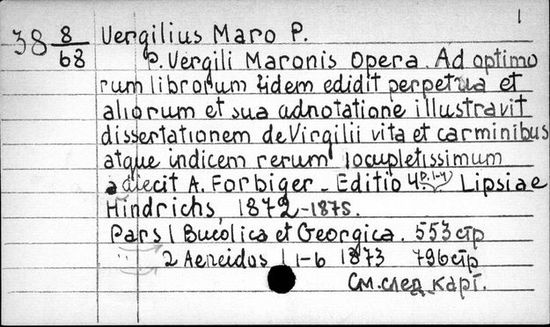 1
38 8/68 Vergilius Maro P.
P. Vergili Maronis Opera. Ad optimo
rum librorum fidem edidit perpetua et
aliorum et sua adnotatione illustravit
dissertationem de Virgilii vita et carminibus
atque indicem rerum locupletissimum
adiecit A. Forbiger – Editio 4 p. 1-4 Lipsiae
Hindrichs, 1872-1875.
Pars 1 Bucolica et Georgica. 553 стр
2 Aeneidos l 1-6 1873 796 стр
См. след карт.